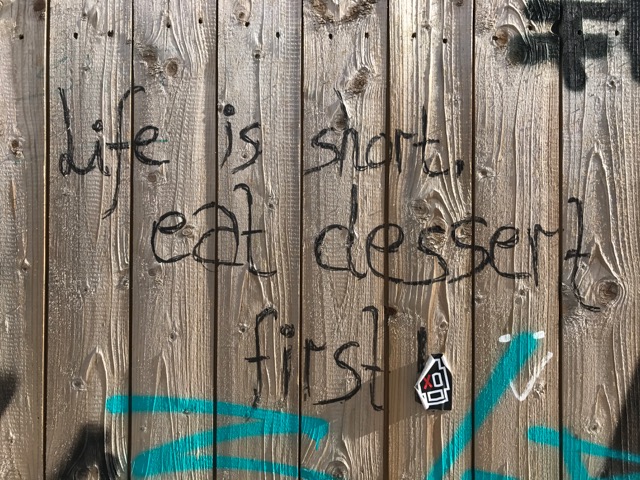 Life is short,
eat dessert
first!